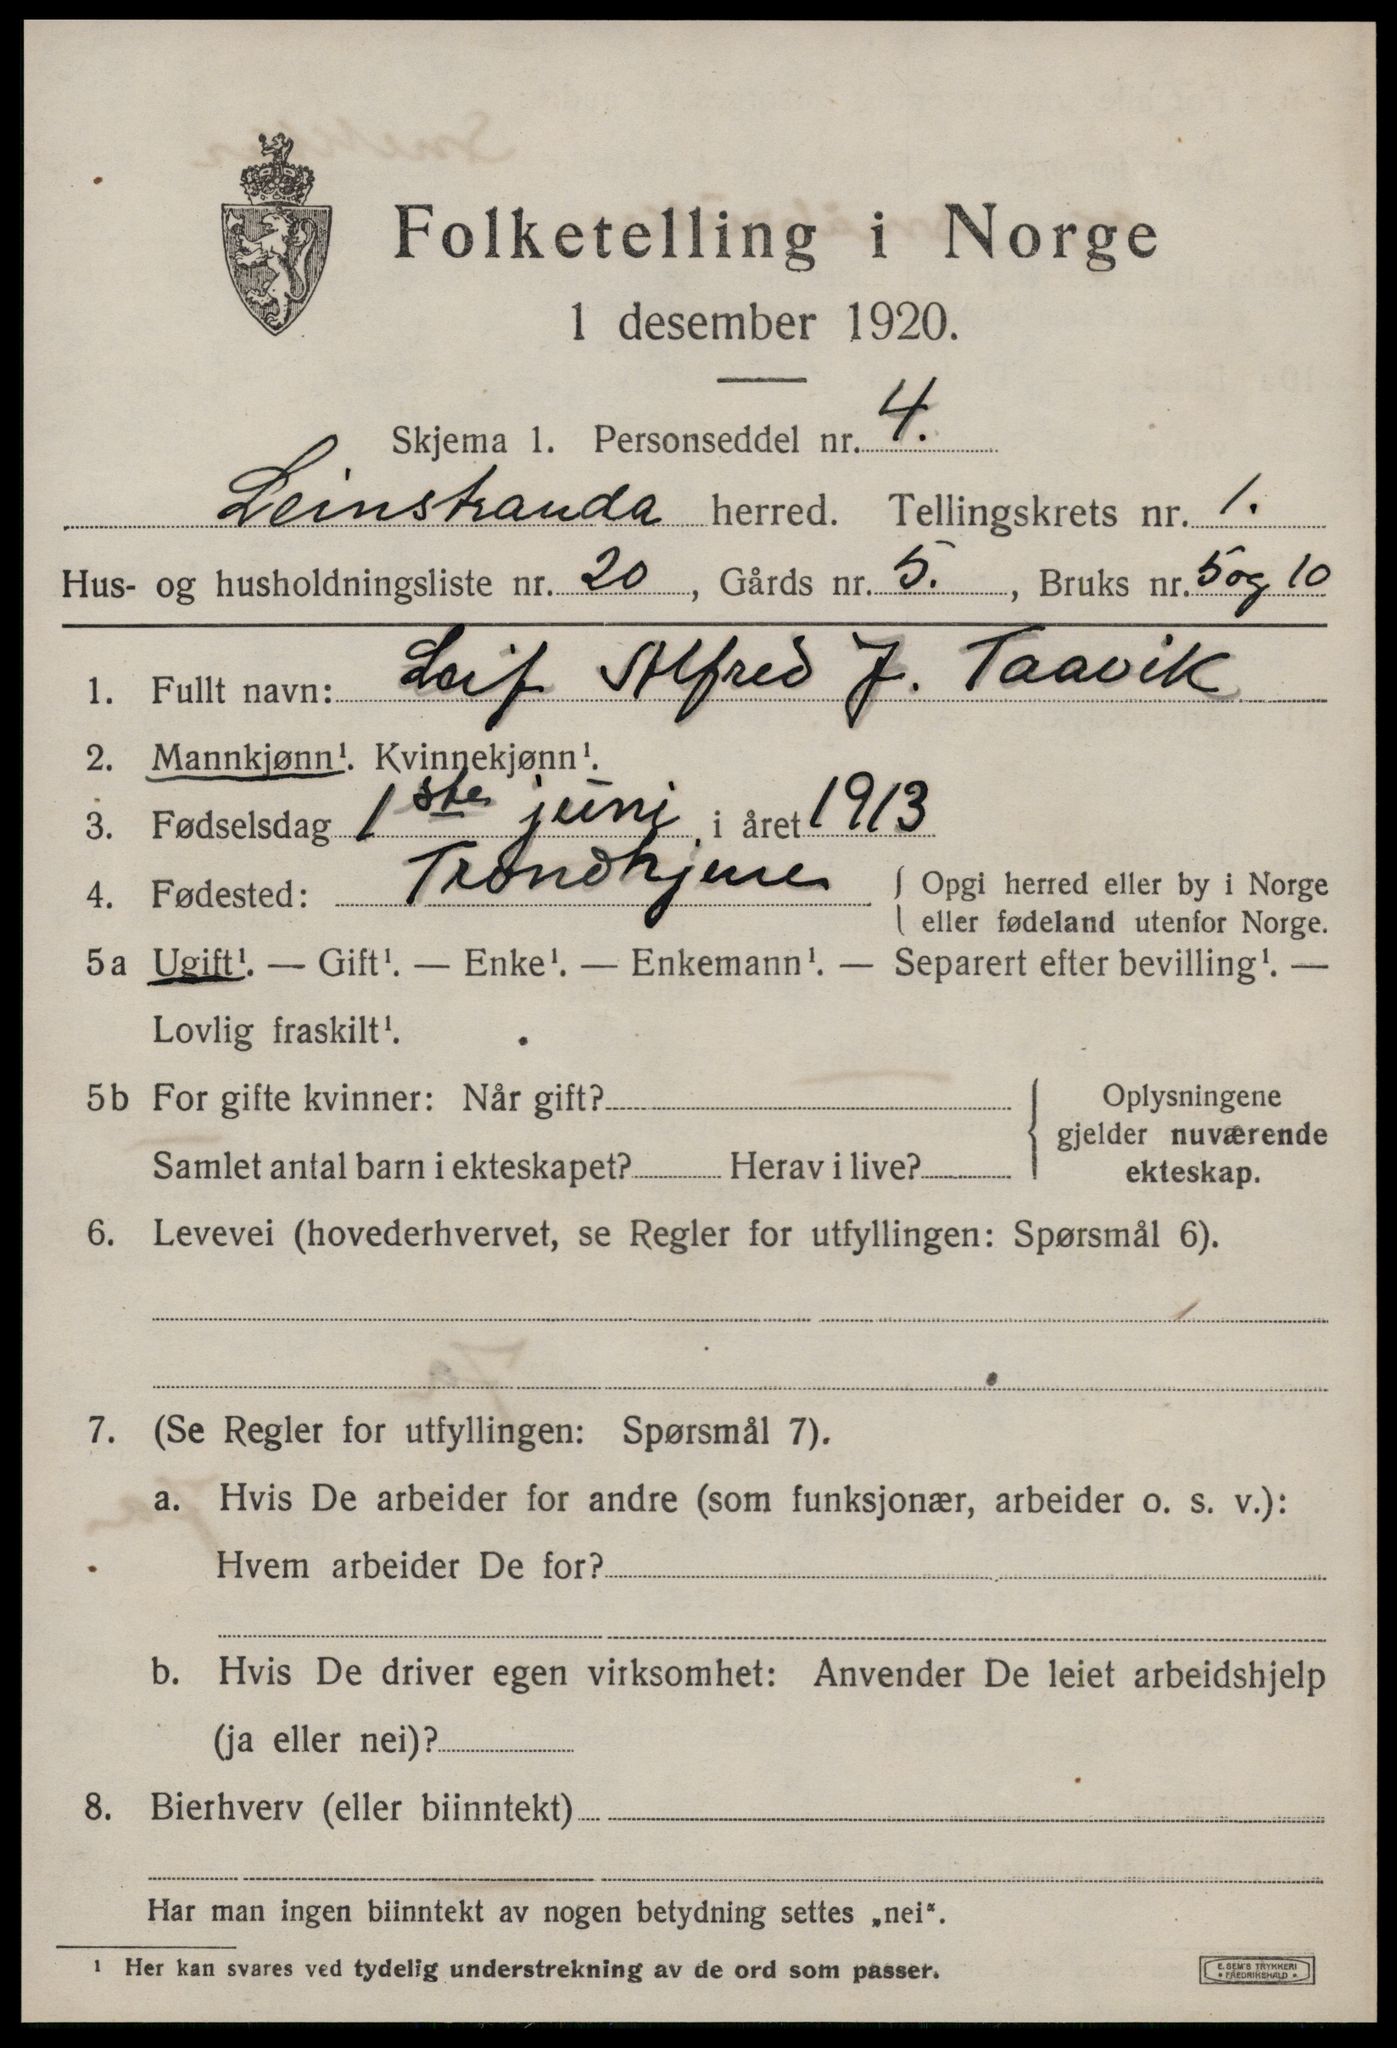 Folketelling i Norge
1 desember 1920.
Skjema 1. Personseddel nr. 4.
Leinstranda herred. Tellingskrets nr. 1.
Hus- og husholdningsliste nr. 20, Gårds nr. 5., Bruks nr. 5 og 10
1. Fullt navn: Leif Alfred J. Taavik
2. Mannkjønn¹. Kvinnekjønn¹.
3. Fødselsdag 1ste juni, i året 1913
4. Fødested: Trondhjem { Opgi herred eller by i Norge
eller fødeland utenfor Norge.
5a Ugift¹. — Gift¹. — Enke¹. — Enkemann¹. — Separert efter bevilling¹. —
Lovlig fraskilt¹.
5b For gifte kvinner: Når gift?
Samlet antal barn i ekteskapet? Herav i live?
{ Oplysningene
gjelder nuværende
ekteskap.
6. Levevei (hovederhvervet, se Regler for utfyllingen: Spørsmål 6).
7. (Se Regler for utfyllingen: Spørsmål 7).
a. Hvis De arbeider for andre (som funksjonær, arbeider o. s. v.):
Hvem arbeider De for?
b. Hvis De driver egen virksomhet: Anvender De leiet arbeidshjelp
(ja eller nei)?
8. Bierhverv (eller biinntekt)
Har man ingen biinntekt av nogen betydning settes „nei“.
¹ Her kan svares ved tydelig understrekning av de ord som passer.
E. SEM'S TRYKKERI
• FREDRIKSHALD •